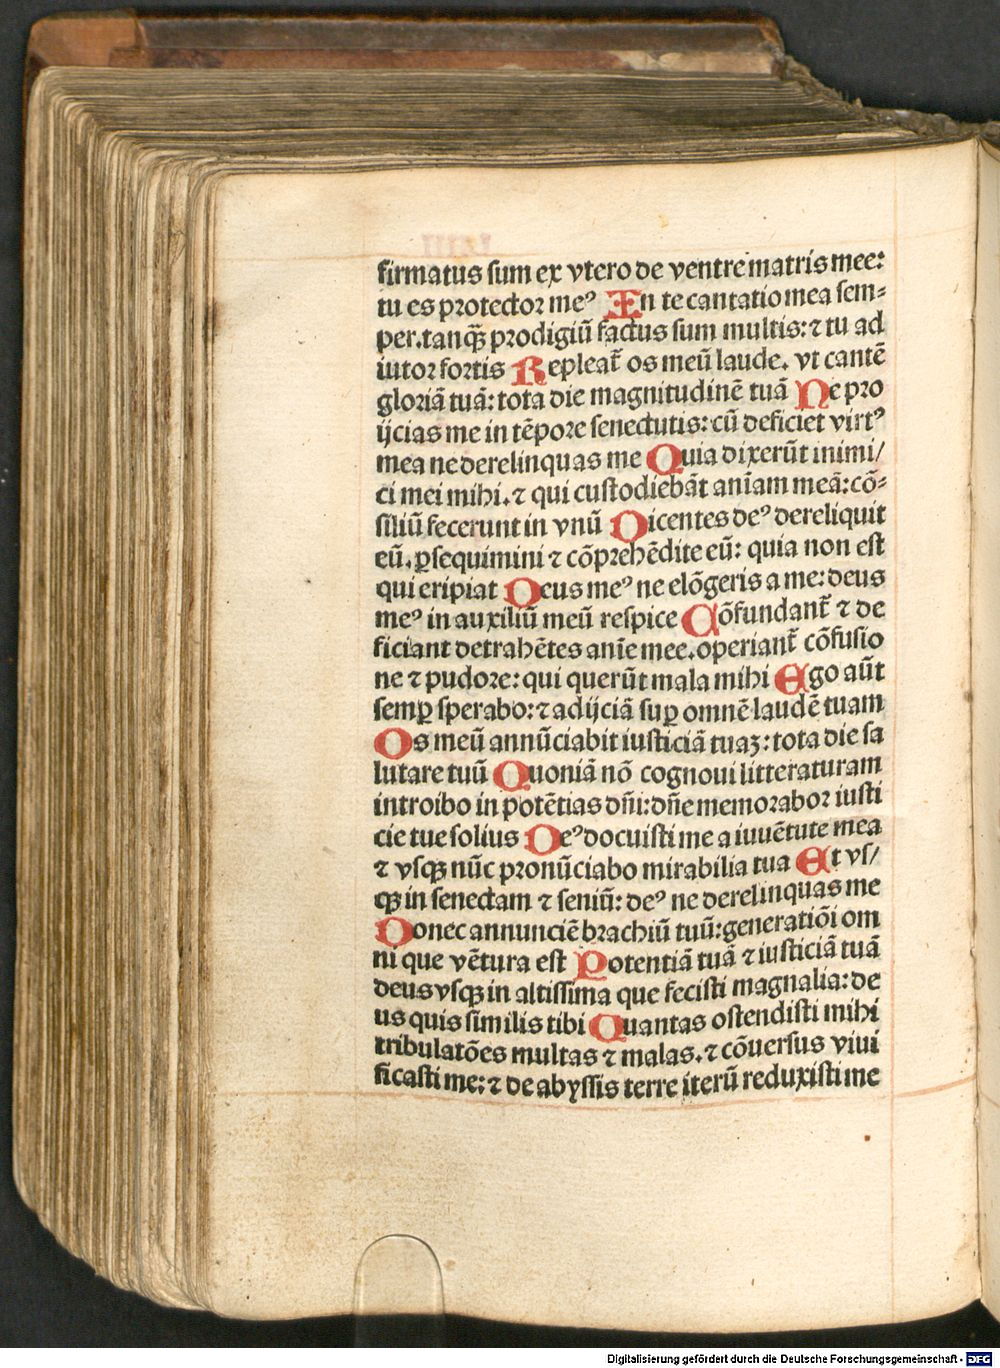 firmatus sum ex vtero de ventre matris mee:
tu es protector meꝰ In te cantatio mea sem⸗
per.tanqᷓ prodigiū factus sum multis: ⁊ tu ad
iutor fortis Repleat᷑ os meū laude. vt cantē
gloriā tuā: tota die magnitudinē tuā Ne pro
ijcias me in tēpore senectutis: cū deficiet virtꝰ
mea ne derelinquas me Quia dixerūt inimi/
ci mei mihi. ⁊ qui custodiebāt aniam meā: cō⸗
siliū fecerunt in vnū Dicentes deꝰ dereliquit
eū. ꝑsequimini ⁊ cōprehēdite eū: quia non est
qui eripiat Deus meꝰ ne elōgeris a me: deus
meꝰ in auxiliū meū respice Cōfundant᷑ ⁊ de
ficiant detrahētes anīe mee. operiant᷑ cōfusio
ne ⁊ pudore: qui querūt mala mihi Ego aūt
semꝑ sperabo: ⁊ adijciā suꝑ omnē laudē tuam
Os meū annūciabit iusticiā tuaꝫ: tota die sa
lutare tuū Quoniā nō cognoui litteraturam
introibo in potētias dn̄i: dn̄e memorabor iusti
cie tue solius Deꝰ docuisti me a iuuētute mea
⁊ vsqꝫ nūc pronūciabo mirabilia tua Et vs/
qꝫ in senectam ⁊ seniū: deꝰ ne derelinquas me
Donec annunciē brachiū tuū: generatiōi om
ni que vētura est Potentiā tuā ⁊ iusticiā tuā
deus vsqꝫ in altissima que fecisti magnalia: de
us quis similis tibi Quantas ostendisti mihi
tribulatōes multas ⁊ malas. ⁊ cōuersus viui
ficasti me: ⁊ de abyssis terre iterū reduxisti me
Digitalisierung gefördert durch die Deutsche Forschungsgemeinschaft - DFG